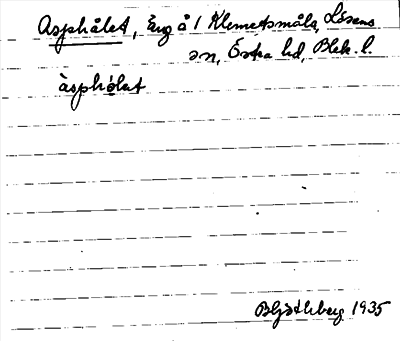 Asphålet, Äng å 1 Klemetsmåla, Lösens
sn, Östra hd, Blek. l.
àsphólat
1935